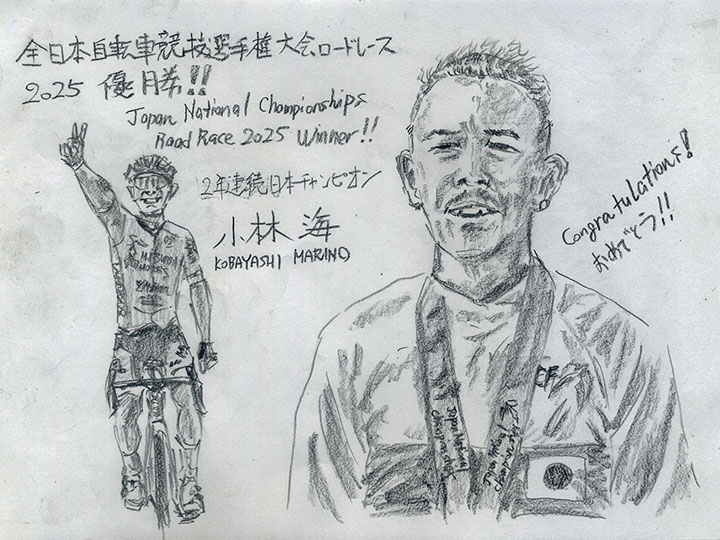 全日本自転車競技選手権大会ロードレース
2025 優勝!!
Japan National Championships
Road Race 2025 Winner!!
2年連続日本チャンピオン
小林 海
KOBAYASHI MARINO
Congratulations!
おめでとう!!
Japan National
Championships